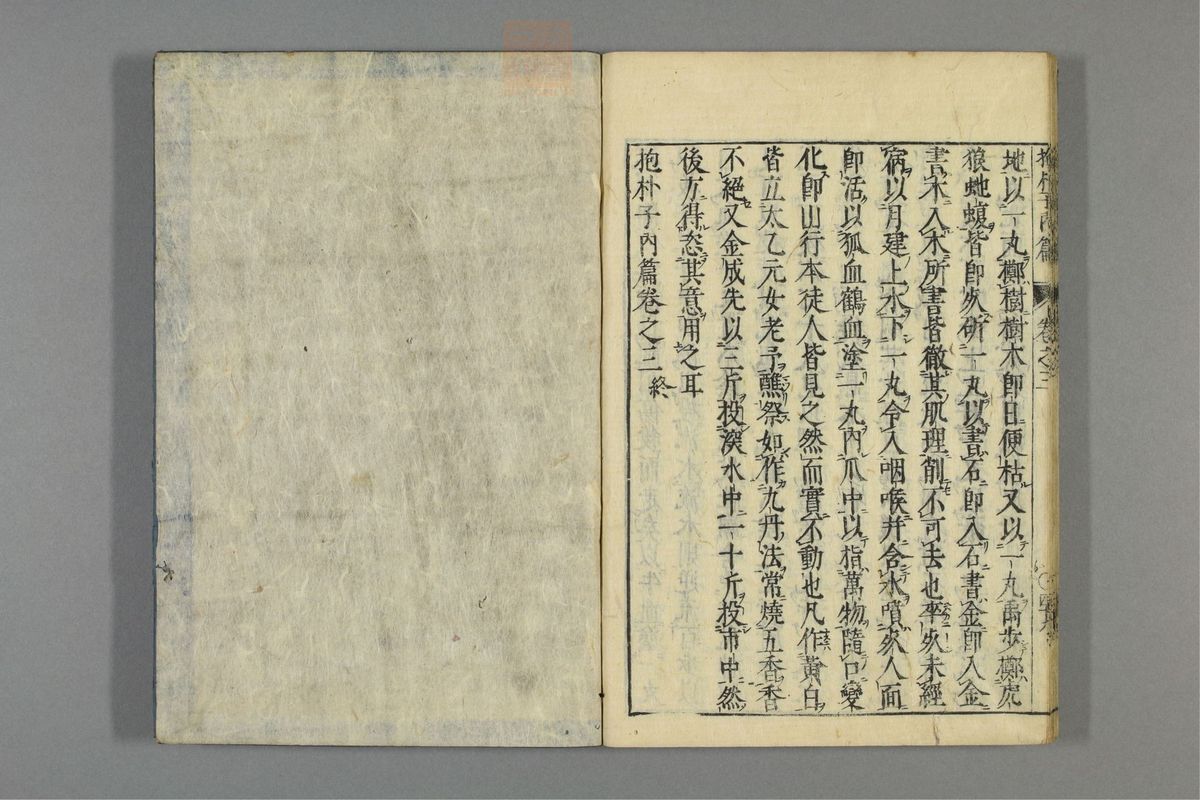 地以一丸擲樹樹木即日便枯又以一丸禹步擲虎
狼虵蝮皆即死斫一丸以書石即入石書金即入金
書木入木所書皆徹其肌理削不可去也卒死未經
病以月建上水下一丸令入咽喉并含水噴死人面
即活以狐血鶴血塗一丸內爪中以指萬物隨口變
化即山行木徙人皆見之然而實不動也凡作黃白
皆立太乙元女老子醮祭如作九丹法常燒五香香
不絕又金成先以三斤投深水中一十斤投市中然
後方得恣其意用之耳
抱朴子內篇卷之三 終